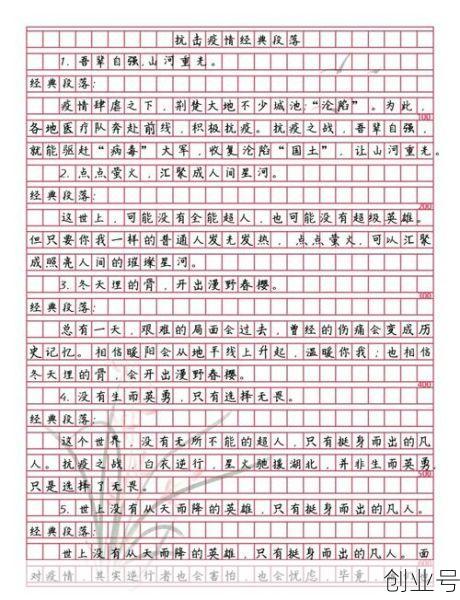 抗击疫情经典段落
1. 吾辈自强,山河重光。
经典段落:
疫情肆虐之下，荆楚大地不少城池“沦陷”。为此，
各地医疗队奔赴前线，积极抗疫。抗疫之战，吾辈自强，
100
就能驱赶“病毒”大军，收复沦陷“国土”，让山河重光。
2. 点点萤火，汇聚成人间星河。
经典段落:
200
这世上，可能没有全能超人，也可能没有超级英雄。
但只要你我一样的普通人发光发热，点点萤火，可以汇聚
成照亮人间的璀璨星河。
3. 冬天埋的骨，开出漫野春樱。
300
经典段落:
总有一天，艰难的局面会过去，曾经的伤痛会变成历
史记忆。相信暖阳会从地平线上升起，温暖你我；也相信
冬天埋的骨，会开出漫野春樱。
400
4. 没有生而英勇，只有选择无畏。
经典段落:
这个世界，没有无所不能的超人，只有挺身而出的凡
人。抗疫之战，白衣逆行，星火驰援湖北，并非生而英勇，
500
只是选择了无畏。
5. 世上没有从天而降的英雄，只有挺身而出的凡人。
经典段落:
世上没有从天而降的英雄，只有挺身而出的凡人。面
600
对疫情，其实逆行者也会害怕，也会忧虑，毕竟，
创业号